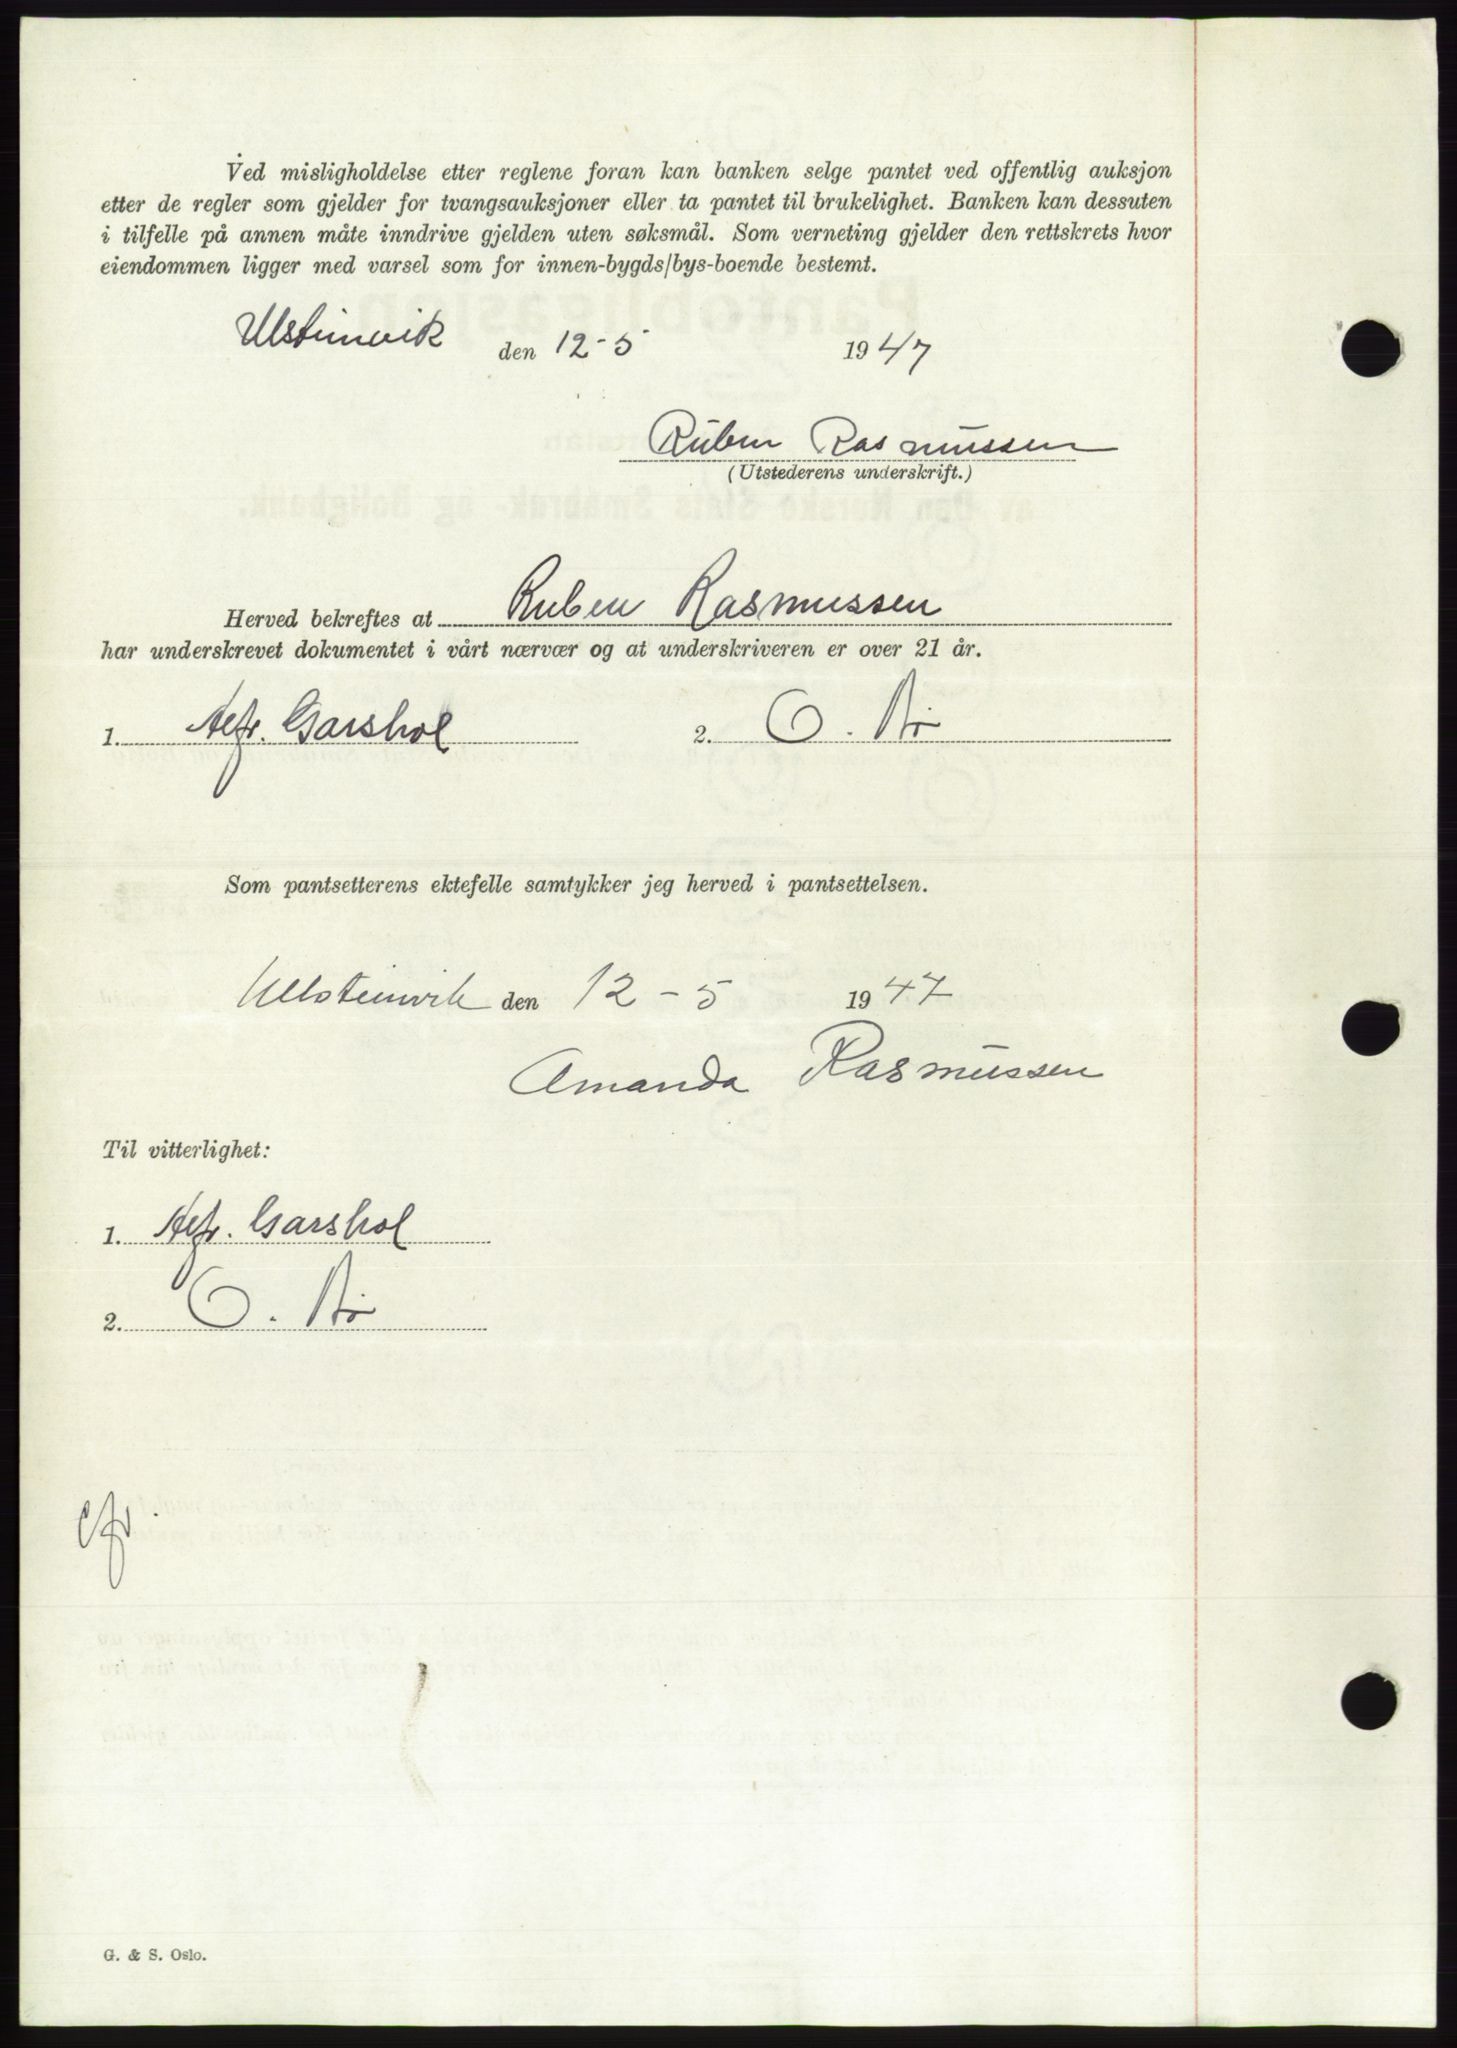 Ved misligholdelse etter reglene foran kan banken selge pantet ved offentlig auksjon
etter de regler som gjelder for tvangsauksjoner eller ta pantet til brukelighet. Banken kan dessuten
i tilfelle på annen måte inndrive gjelden uten søksmål. Som verneting gjelder den rettskrets hvor
eiendommen ligger med varsel som for innen-bygds/bys-boende bestemt.
Ulsteinvik den 12-5 1947
Ruben Rasmussen
(Utstederens underskrift.)
Herved bekreftes at Ruben Rasmussen
har underskrevet dokumentet i vårt nærvær og at underskriveren er over 21 år.
1. Garshol 2. O.
Som pantsetterens ektefelle samtykker jeg herved i pantsettelsen.
Ulsteinvik den 12-5 1947
Amanda Rasmussen
Til vitterlighet:
1. Garshol
2. O.
G. & S. Oslo.